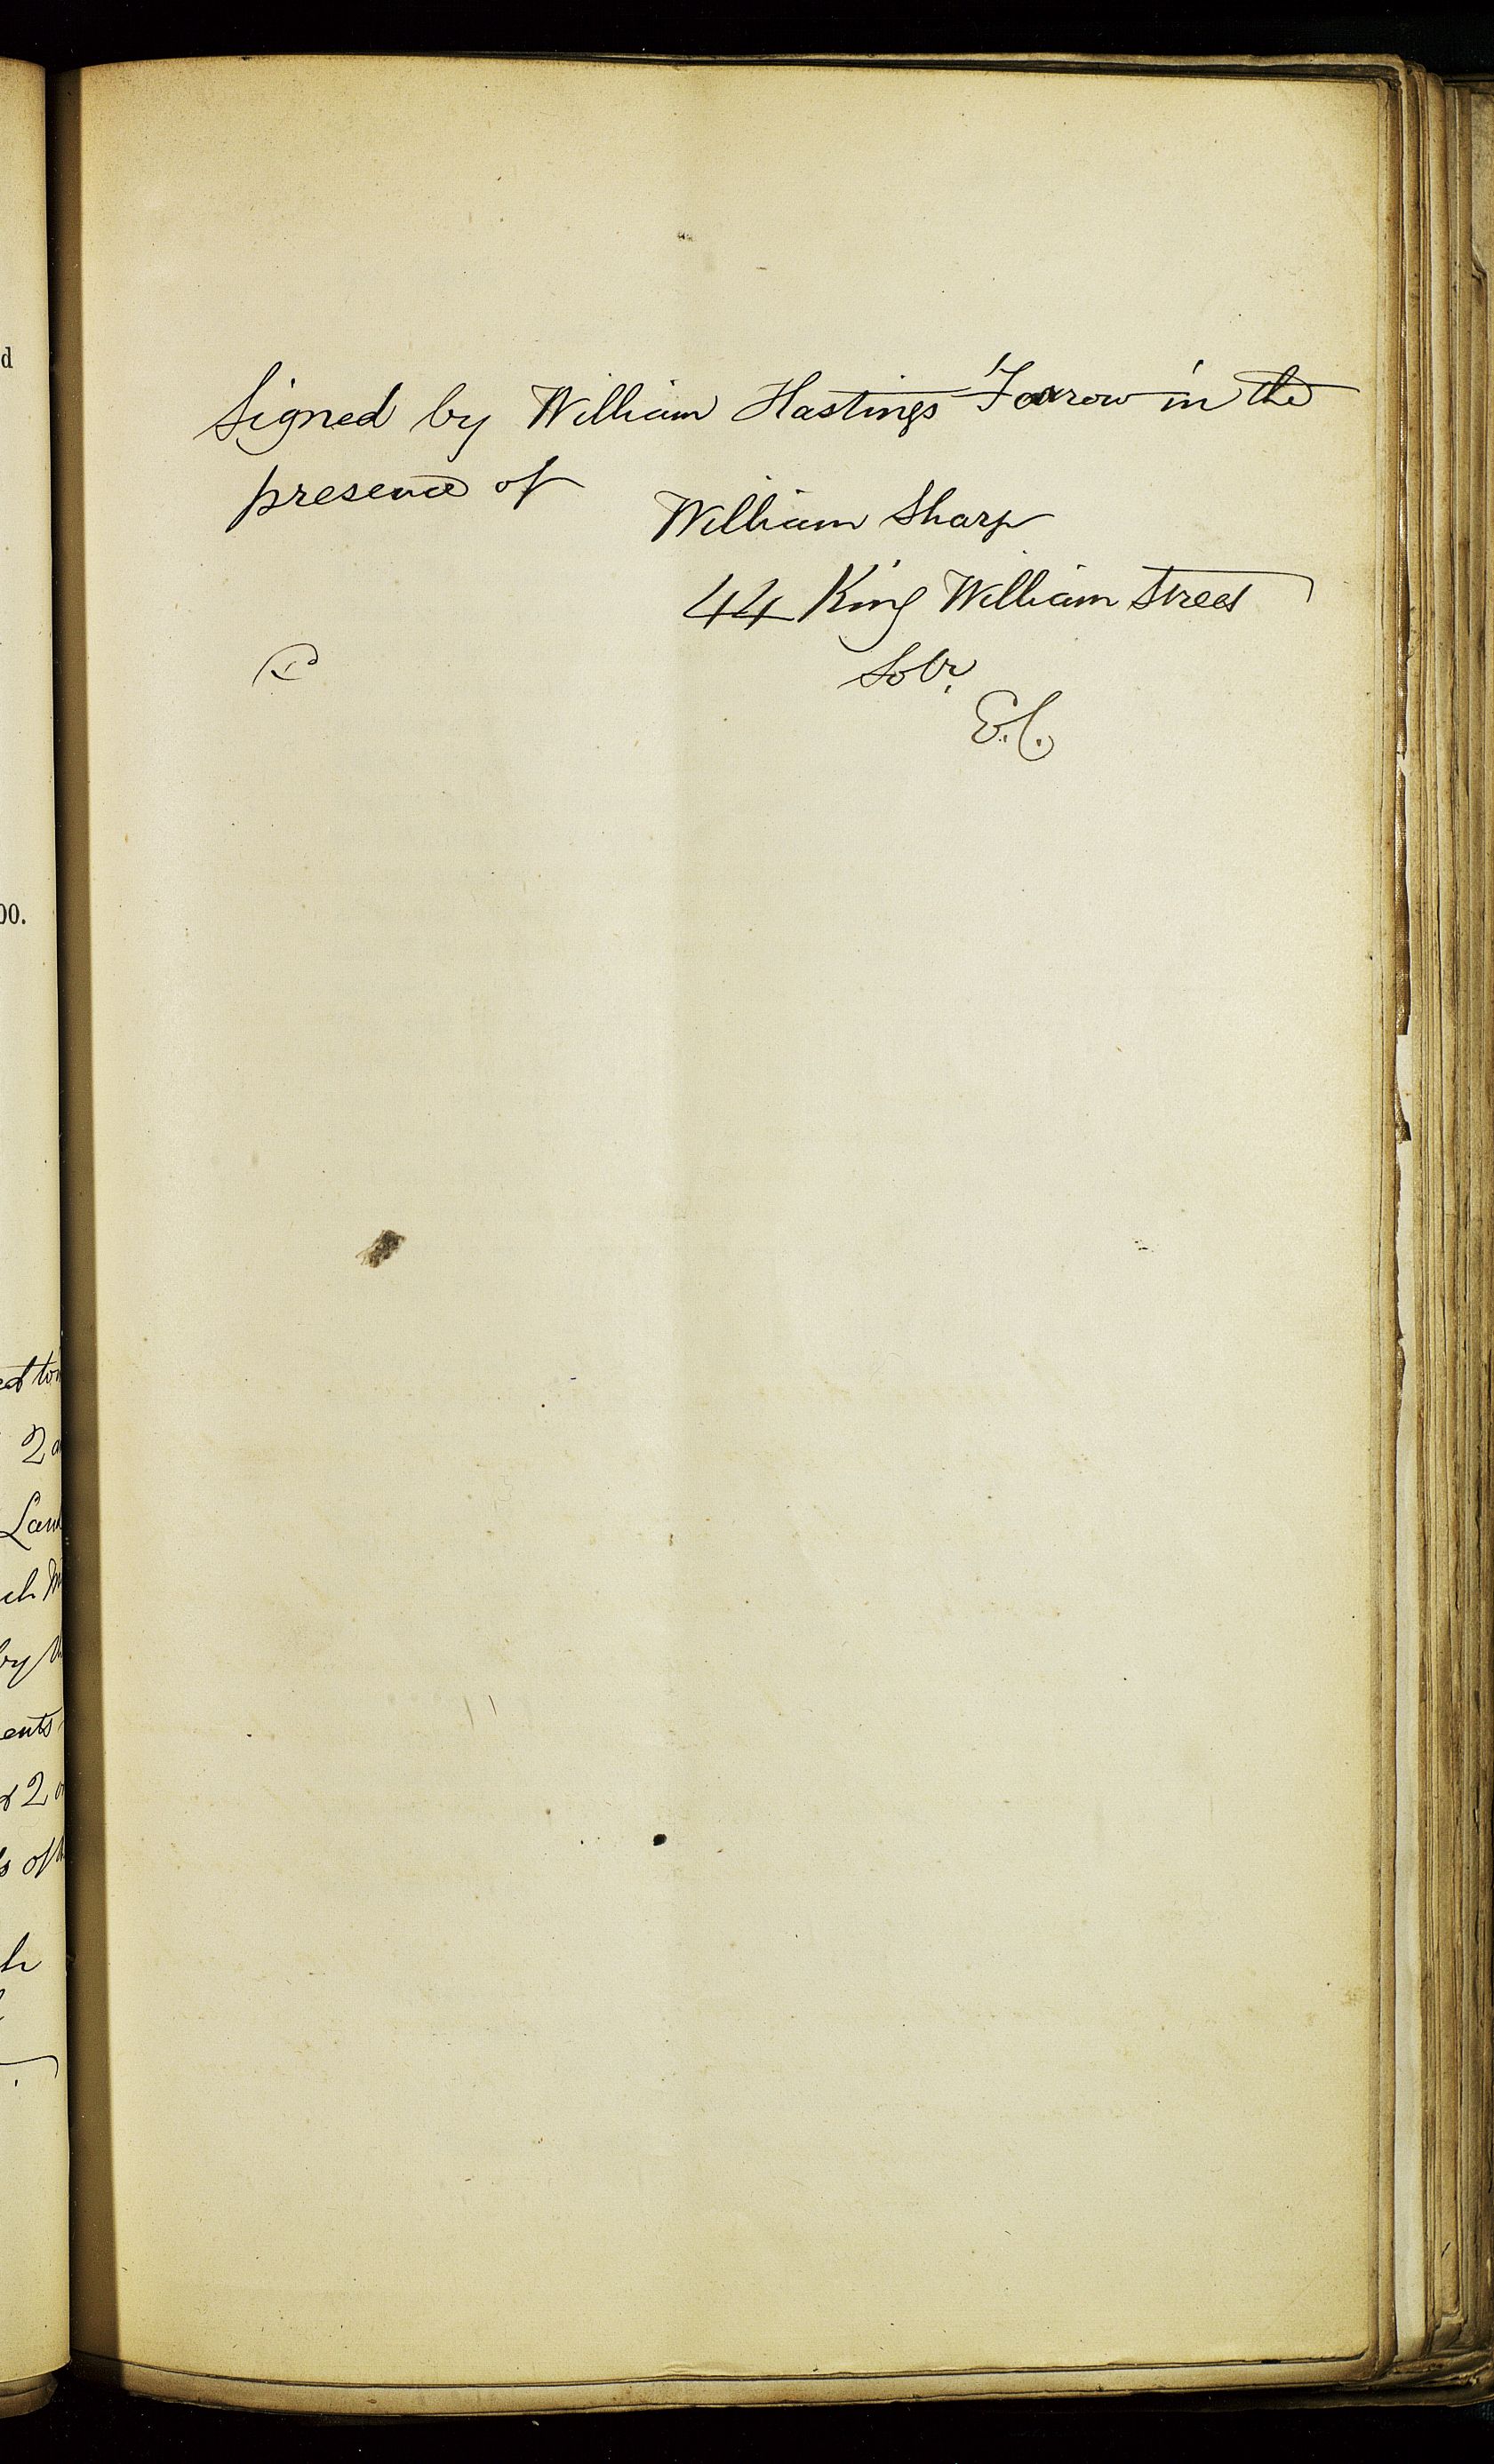 Signed by William Hastings Farrow in the
presence of
William Sharp
44 King William Street
Solr.
E.C.
d
00.
2
by
ents
2
s of